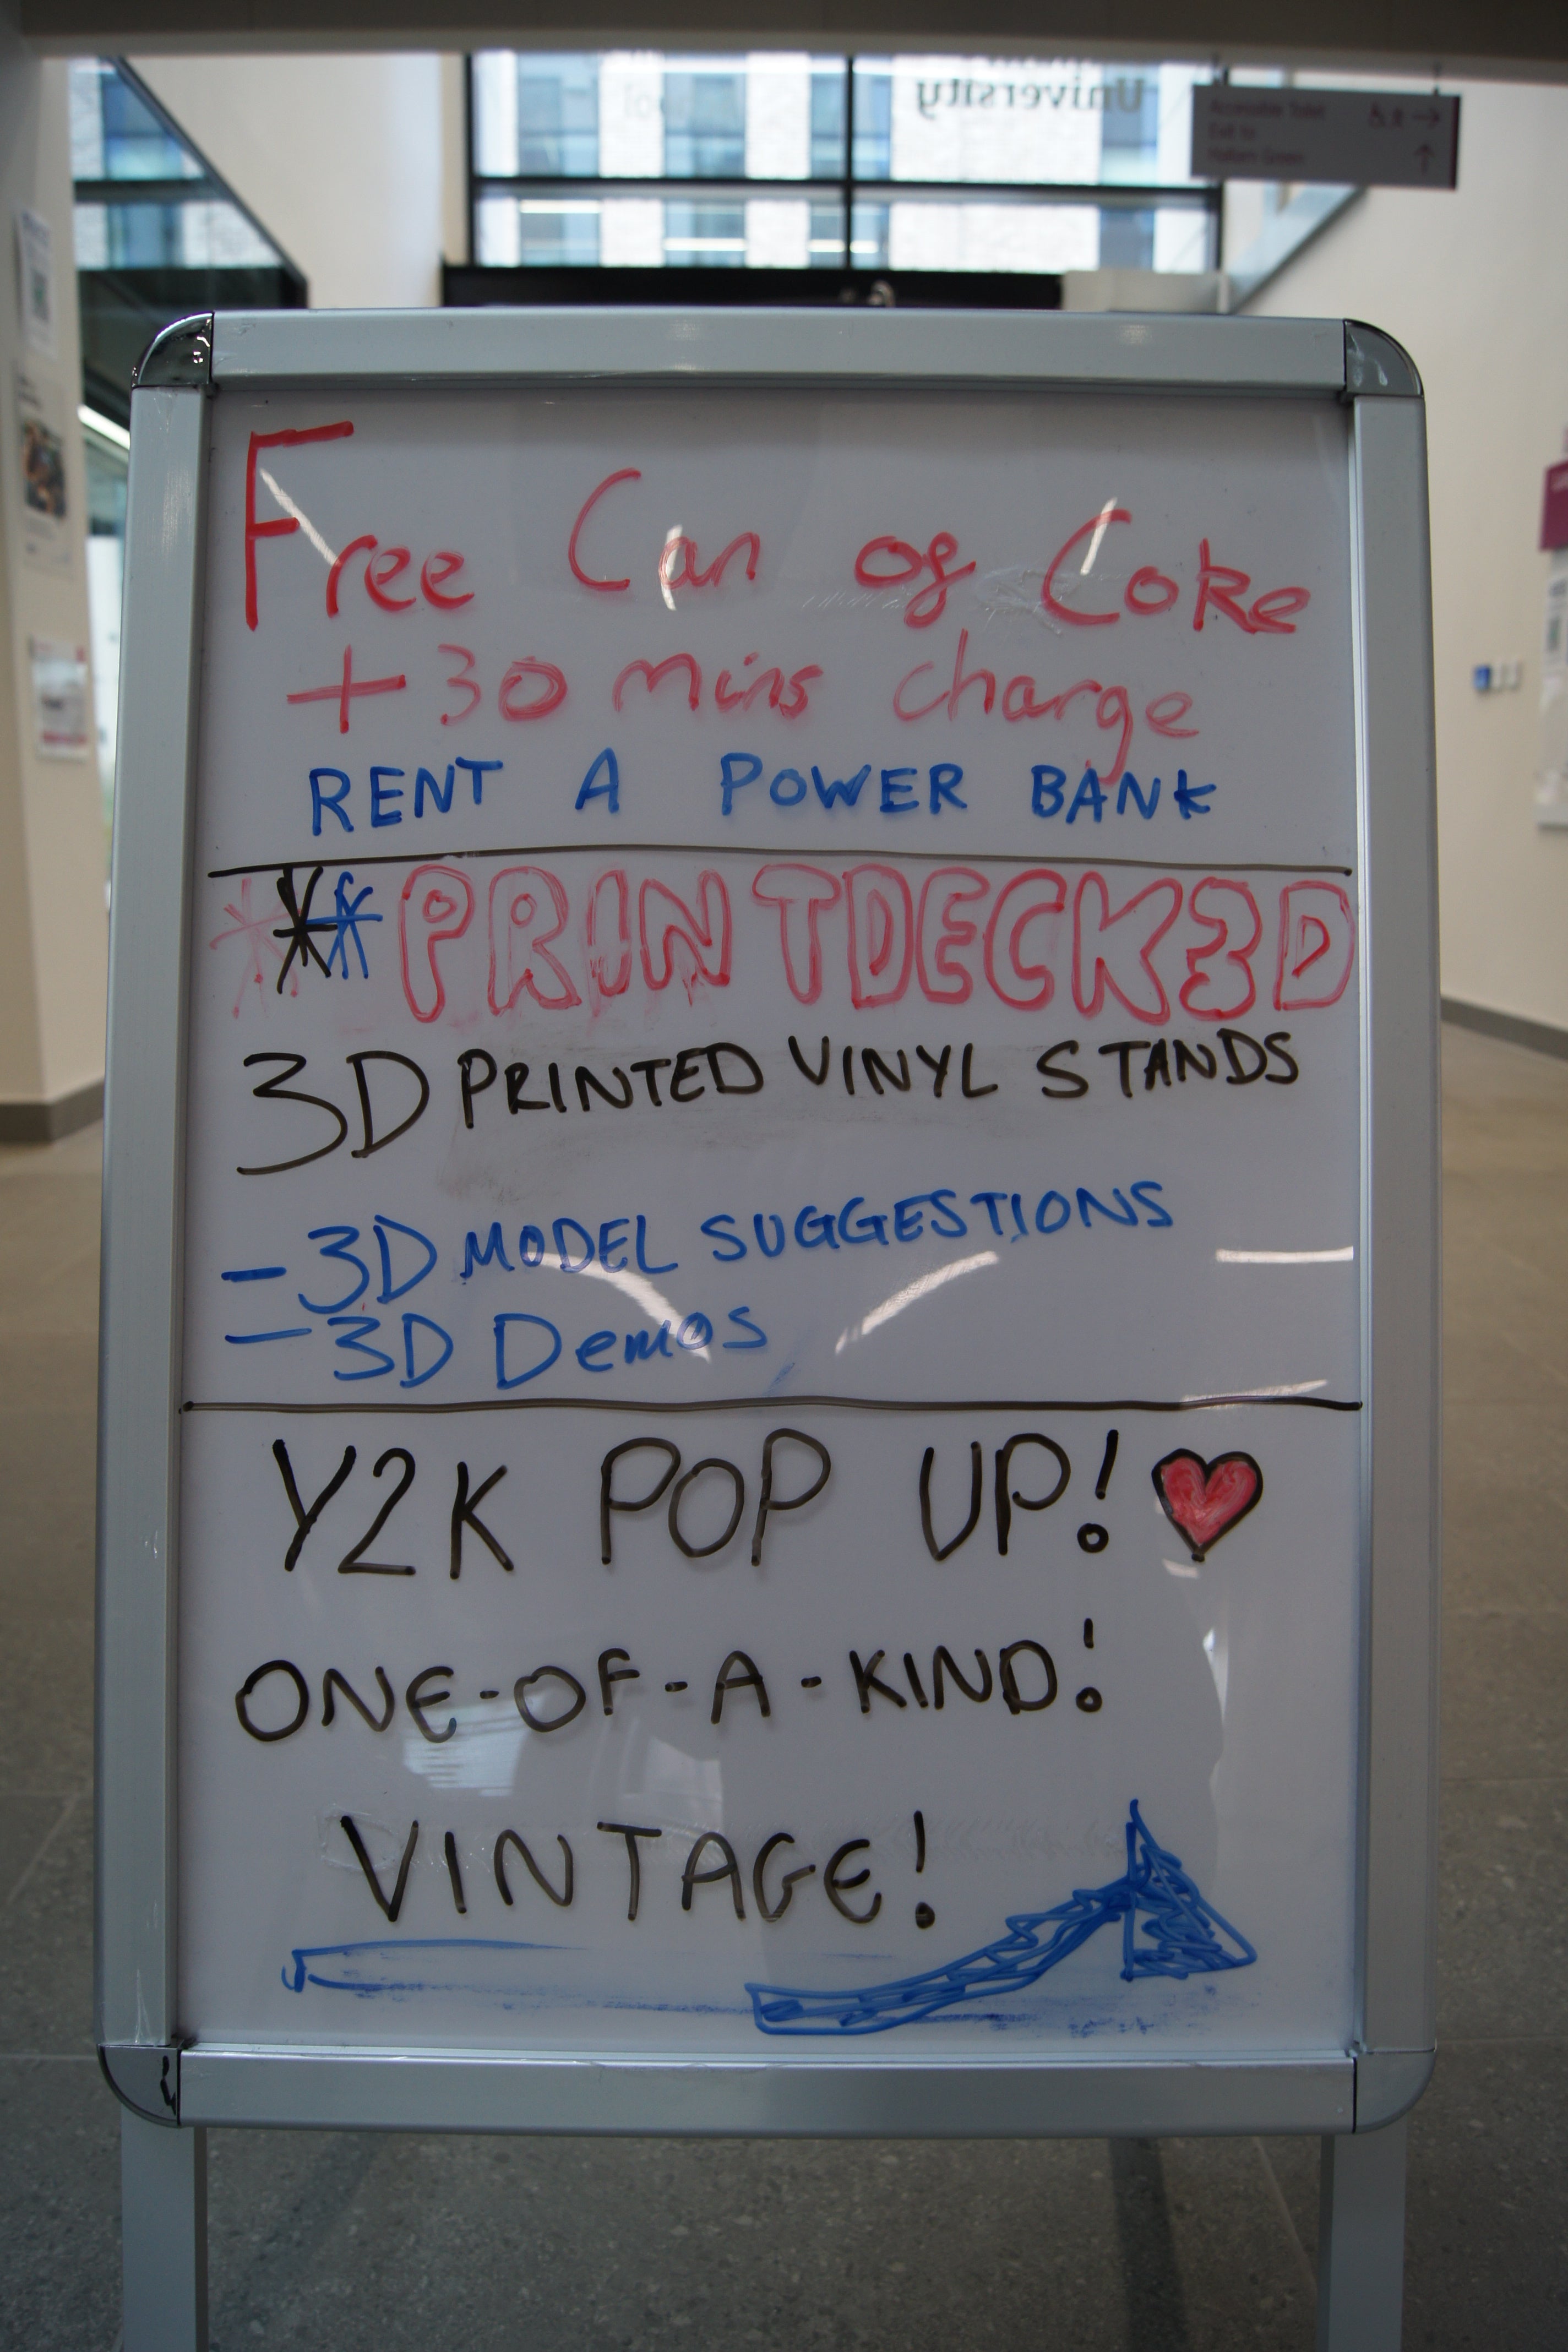 University
Accessible Toilet
Exit to
Hallam Green
Free Can of Coke
+ 30 mins charge
RENT A POWER BANK
*** PRINTDECK3D
3D PRINTED VINYL STANDS
- 3D MODEL SUGGESTIONS
- 3D Demos
Y2K POP UP! ♥
ONE-OF-A-KIND!
VINTAGE!